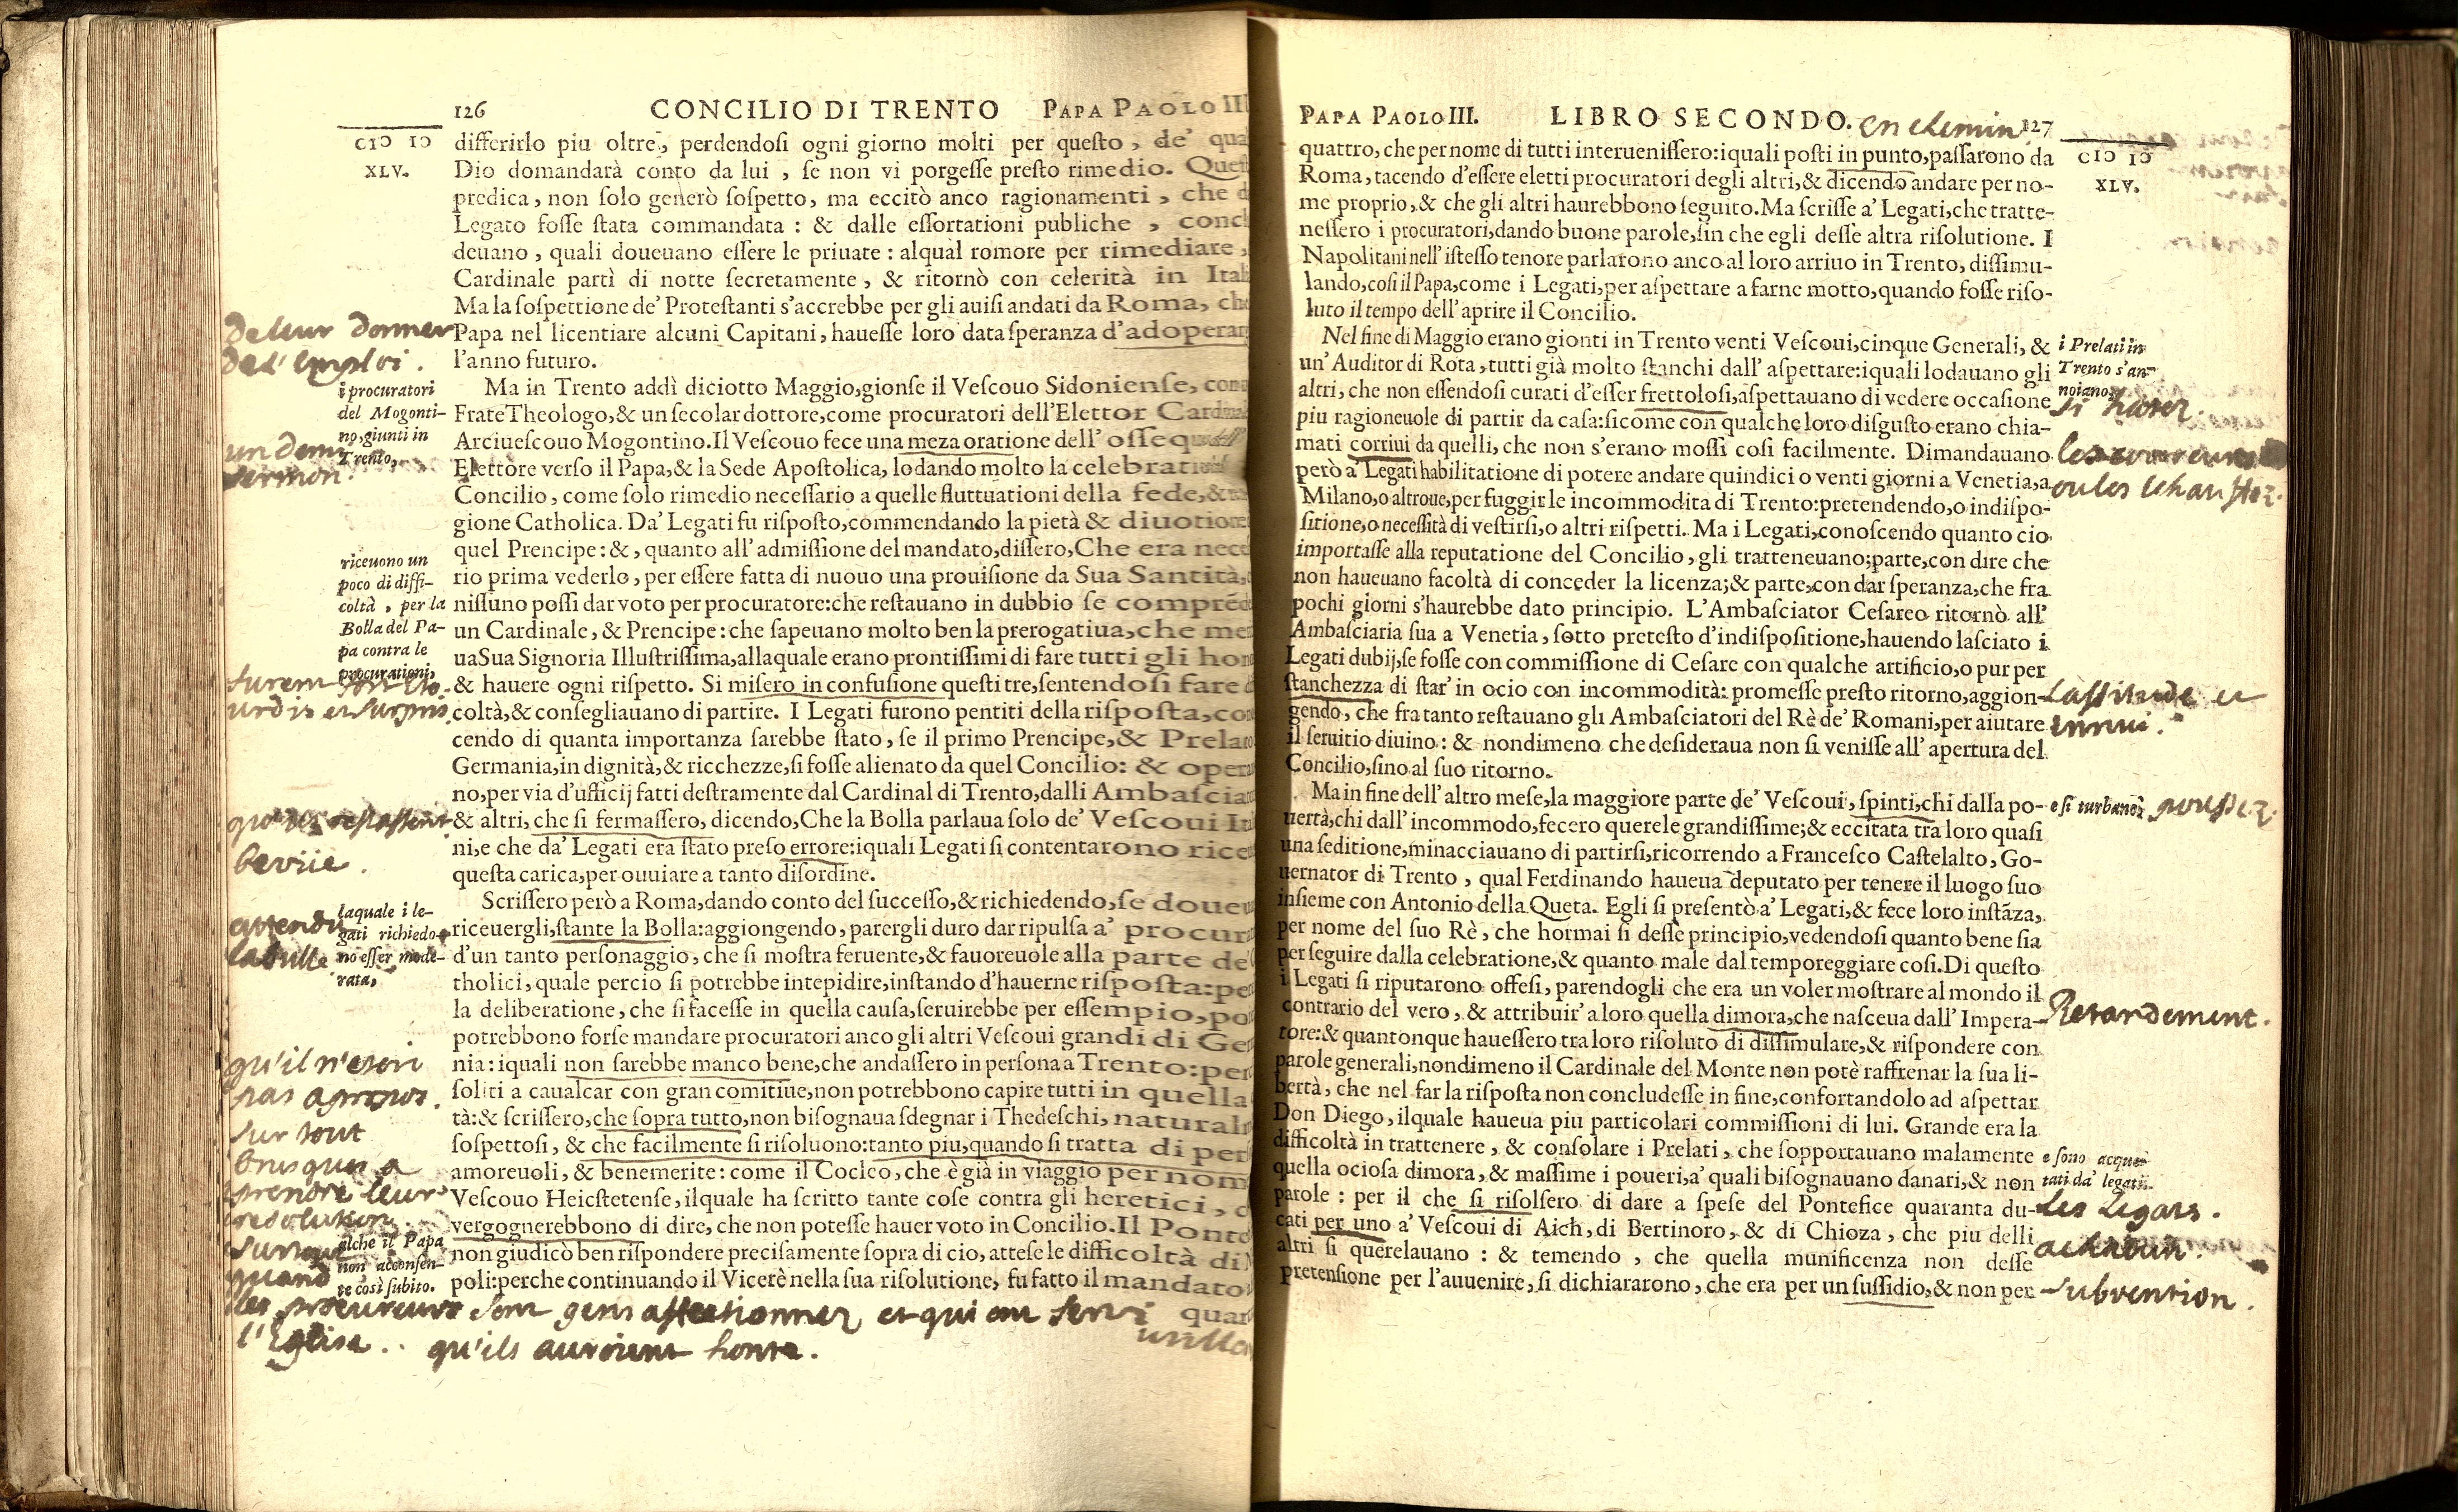 126 CONCILIO DI TRENTO PAPA PAOLO III
CIↃ IↃ
XLV.
differirlo piu oltre, perdendoſi ogni giorno molti per queſto, de' qua
Dio domandarà conto da lui, ſe non vi porgeſſe preſto rimedio. Queſt
predica, non ſolo generò ſoſpetto, ma eccitò anco ragionamenti, che
Legato foſſe ſtata commandata: & dalle eſſortationi publiche, concl
deuano, quali doueuano eſſere le priuate: alqual romore per rimediare,
Cardinale partì di notte ſecretamente, & ritornò con celerità in Ital
Ma la ſoſpettione de' Proteſtanti s'accrebbe per gli auiſi andati da Roma, che
Papa nel licentiare alcuni Capitani, haueſſe loro data ſperanza d'adoperar
l'anno futuro.
de leur donner
de l'employ.
Ma in Trento addì diciotto Maggio, gionſe il Veſcouo Sidonienſe, con
Frate Theologo, & un ſecolar dottore, come procuratori dell'Elettor Cardinale
Arciueſcouo Mogontino. Il Veſcouo fece una meza oratione dell' oſſequ
Elettore verſo il Papa, & la Sede Apoſtolica, lodando molto la celebrati
Concilio, come ſolo rimedio neceſſario a quelle fluttuationi della fede, &
gione Catholica. Da' Legati fu riſpoſto, commendando la pietà & diuotione
quel Prencipe: &, quanto all' admiſſione del mandato, diſſero, Che era nece
rio prima vederlo, per eſſere fatta di nuouo una prouiſione da Sua Santità,
niſſuno poſſi dar voto per procuratore: che reſtauano in dubbio ſe comprẽ
un Cardinale, & Prencipe: che ſapeuano molto ben la prerogatiua, che me
ua Sua Signoria Illuſtriſſima, allaquale erano prontiſſimi di fare tutti gli hon
& hauere ogni riſpetto. Si miſero in confuſione queſti tre, ſentendoſi fare
coltà, & conſegliauano di partire. I Legati furono pentiti della riſpoſta, con
cendo di quanta importanza ſarebbe ſtato, ſe il primo Prencipe, & Prelato
Germania, in dignità, & ricchezze, ſi foſſe alienato da quel Concilio: & opera
no, per via d'ufficij fatti deſtramente dal Cardinal di Trento, dalli Ambaſcia
& altri, che ſi fermaſſero, dicendo, Che la Bolla parlaua ſolo de' Veſcoui It
ni, e che da' Legati era ſtato preſo errore: iquali Legati ſi contentarono rice
queſta carica, per ouuiare a tanto diſordine.
i procuratori
del Mogonti-
no, giunti in
Trento,
un demi
sermon.
riceuono un
poco di diffi-
coltà, per la
Bolla del Pa-
pa contra le
procurationi,
urdis et surpris
bevüe.
Scriſſero però a Roma, dando conto del ſucceſſo, & richiedendo, ſe doueu
riceuergli, ſtante la Bolla: aggiongendo, parergli duro dar ripulſa a' procur
d'un tanto perſonaggio, che ſi moſtra feruente, & fauoreuole alla parte de
tholici, quale percio ſi potrebbe intepidire, inſtando d'hauerne riſpoſta: pe
la deliberatione, che ſi faceſſe in quella cauſa, ſeruirebbe per eſſempio, po
potrebbono forſe mandare procuratori anco gli altri Veſcoui grandi di Ge
nia: iquali non ſarebbe manco bene, che andaſſero in perſona a Trento: per
ſoliti a caualcar con gran comitiue, non potrebbono capire tutti in quella
tà: & ſcriſſero, che ſopra tutto, non biſognaua ſdegnar i Thedeſchi, natural
ſoſpettoſi, & che facilmente ſi riſoluono: tanto piu, quando ſi tratta di per
amoreuoli, & benemerite: come il Cocleo, che è già in viaggio per nom
Veſcouo Heicſtetenſe, ilquale ha ſcritto tante coſe contra gli heretici,
vergognerebbono di dire, che non poteſſe hauer voto in Concilio. Il Ponte
non giudicò ben riſpondere preciſamente ſopra di cio, atteſe le difficoltà di
poli: perche continuando il Vicerè nella ſua riſolutione, fu fatto il mandato
quat
laquale i le-
gati richiedo-
no eſſer mode-
rata,
attendu
la bulle
qu'il n'estoit
pas apropos.
sur tout
brusques a
prendre leur
resolution
surtout
quand
alche il Papa
non acconſen-
te così ſubito.
les procureurs sont gens affectionnez et qui ont servi
l'Eglise. qu'ils auroient honte.
PAPA PAOLO III. LIBRO SECONDO. en chemin 127
CIↃ IↃ
XLV.
quattro, che per nome di tutti interueniſſero: iquali poſti in punto, paſſarono da
Roma, tacendo d'eſſere eletti procuratori degli altri, & dicendo andare per no-
me proprio, & che gli altri haurebbono ſeguito. Ma ſcriſſe a' Legati, che tratte-
neſſero i procuratori, dando buone parole, ſin che egli deſſe altra riſolutione. I
Napolitani nell' iſteſſo tenore parlarono anco al loro arriuo in Trento, diſſimu-
lando, coſi il Papa, come i Legati, per aſpettare a farne motto, quando foſſe riſo-
luto il tempo dell' aprire il Concilio.
Nel fine di Maggio erano gionti in Trento venti Veſcoui, cinque Generali, &
un' Auditor di Rota, tutti già molto ſtanchi dall' aſpettare: iquali lodauano gli
altri, che non eſſendoſi curati d'eſſer frettoloſi, aſpettauano di vedere occaſione
piu ragioneuole di partir da caſa: ſicome con qualche loro diſguſto erano chia-
mati corriui da quelli, che non s'erano moſſi coſi facilmente. Dimandauano
però a' Legati habilitatione di potere andare quindici o venti giorni a Venetia, a
Milano, o altroue, per fuggir le incommodita di Trento: pretendendo, o indiſpo-
ſitione, o neceſſità di veſtirſi, o altri riſpetti. Ma i Legati, conoſcendo quanto cio
importaſſe alla reputatione del Concilio, gli tratteneuano; parte, con dire che
non haueuano facoltà di conceder la licenza; & parte, con dar ſperanza, che fra
pochi giorni s'haurebbe dato principio. L'Ambaſciator Ceſareo ritornò all'
Ambaſciaria ſua a Venetia, ſotto preteſto d'indiſpoſitione, hauendo laſciato i
Legati dubij, ſe foſſe con commiſſione di Ceſare con qualche artificio, o pur per
ſtanchezza di ſtar' in ocio con incommodità: promeſſe preſto ritorno, aggion-
gendo, che fra tanto reſtauano gli Ambaſciatori del Rè de' Romani, per aiutare
il ſeruitio diuino: & nondimeno che deſideraua non ſi veniſſe all' apertura del
Concilio, ſino al ſuo ritorno.
i Prelati in
Trento s'an-
noiano,
si hatez.
ou les echauffez.
Lassitude et
ennui.
Ma in fine dell' altro meſe, la maggiore parte de' Veſcoui, ſpinti, chi dalla po-
uertà, chi dall' incommodo, fecero querele grandiſſime; & eccitata tra loro quaſi
una ſeditione, minacciauano di partirſi, ricorrendo a Franceſco Caſtelalto, Go-
uernator di Trento, qual Ferdinando haueua deputato per tenere il luogo ſuo
inſieme con Antonio della Queta. Egli ſi preſentò a' Legati, & fece loro inſtãza,
per nome del ſuo Rè, che hormai ſi deſſe principio, vedendoſi quanto bene ſia
per ſeguire dalla celebratione, & quanto male dal temporeggiare coſi. Di queſto
i Legati ſi riputarono offeſi, parendogli che era un voler moſtrare al mondo il
contrario del vero, & attribuir' a loro quella dimora, che naſceua dall' Impera-
tore: & quantonque haueſſero tra loro riſoluto di diſſimulare, & riſpondere con
parole generali, nondimeno il Cardinale del Monte non potè raffrenar la ſua li-
bertà, che nel far la riſpoſta non concludeſſe in fine, confortandolo ad aſpettar
Don Diego, ilquale haueua piu particolari commiſſioni di lui. Grande era la
difficoltà in trattenere, & conſolare i Prelati, che ſopportauano malamente
quella ocioſa dimora, & maſſime i poueri, a' quali biſognauano danari, & non
parole: per il che ſi riſolſero di dare a ſpeſe del Pontefice quaranta du-
cati per uno a' Veſcoui di Aich, di Bertinoro, & di Chioza, che piu delli
altri ſi querelauano: & temendo, che quella munificenza non deſſe
pretenſione per l'auuenire, ſi dichiararono, che era per un ſuſſidio, & non per
e ſi turbano, poussez.
Retardement.
e ſono acque-
tati da' legati.
les Legats.
a chacun.
subvention.